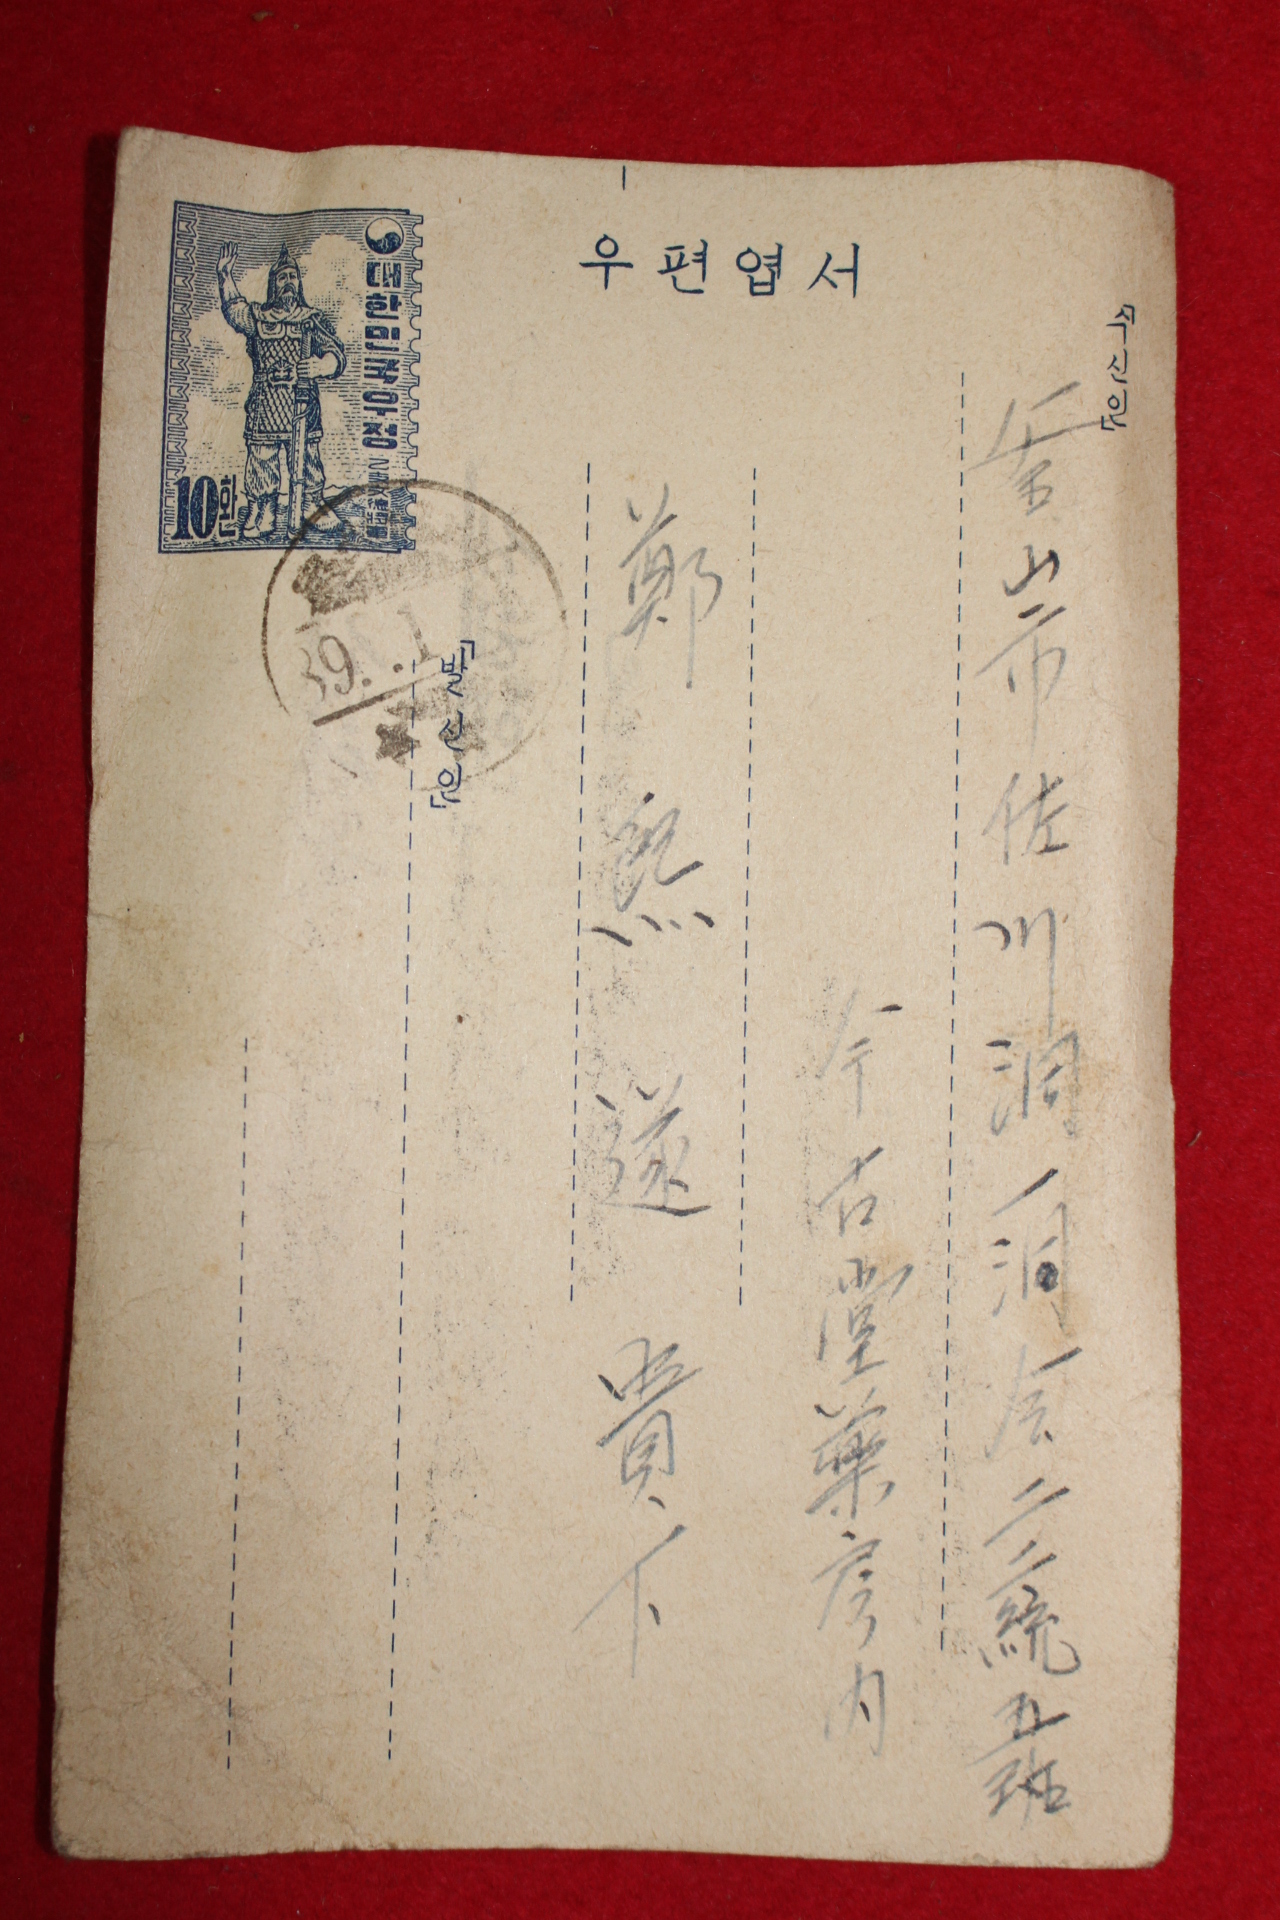 우편엽서
대한민국우정
10환
「수신인」
釜山市佐川洞一洞会二二統五班
今古堂藥房內
鄭熙遂 貴下
「발신인」
39. .1